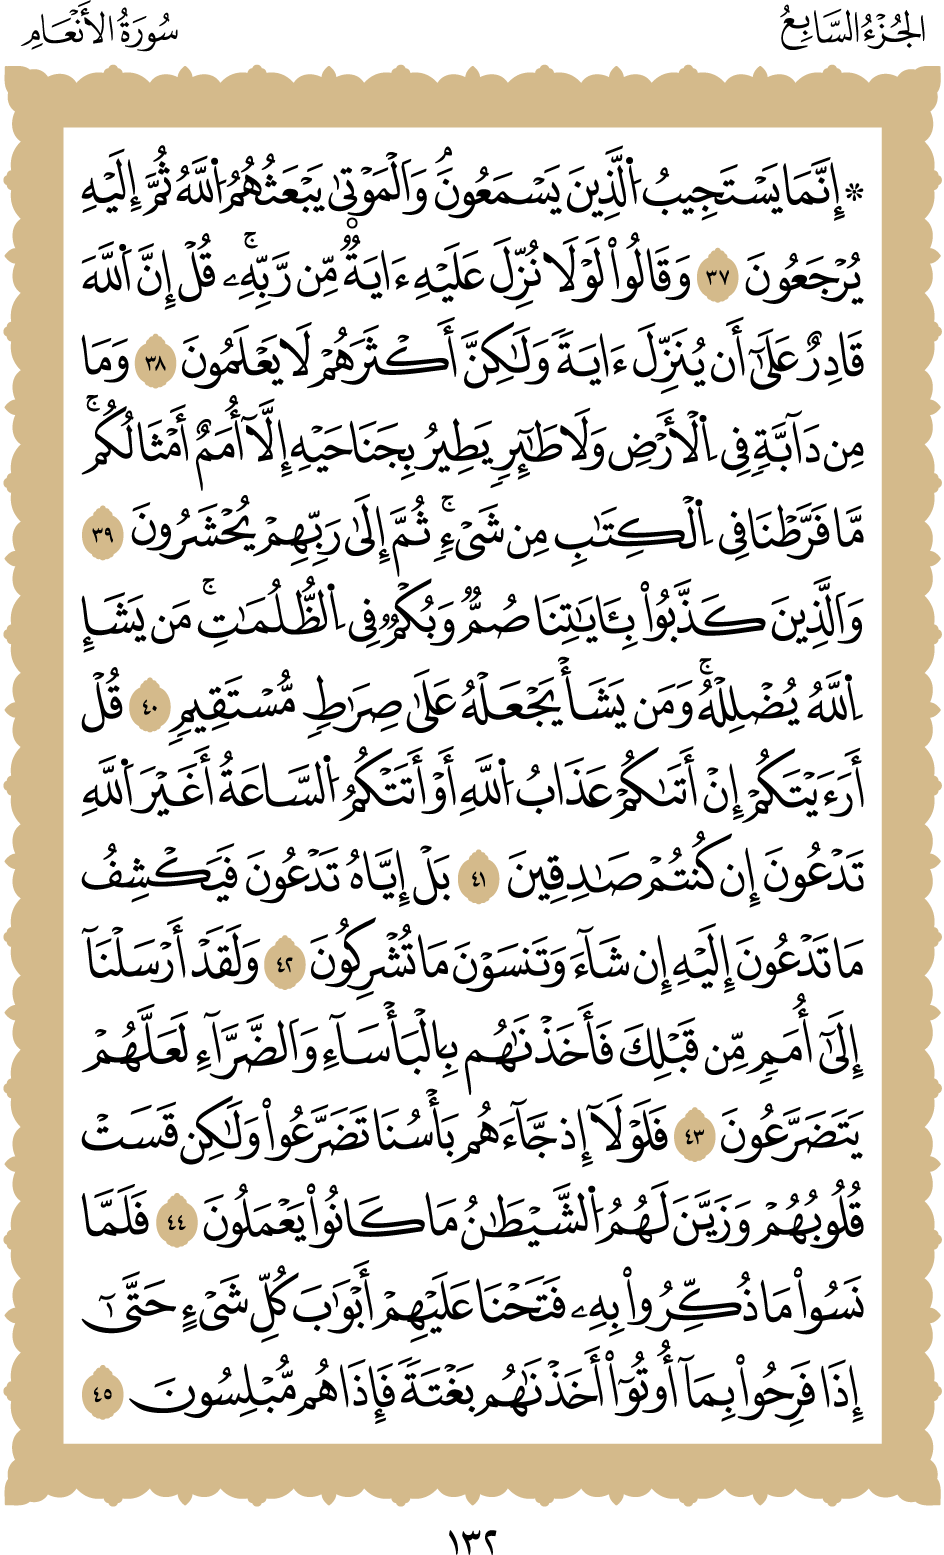 الجُزْءُ السَّابِعُ
سُورَةُ الأَنْعَامِ
۞ إِنَّمَا يَسْتَجِيبُ اُ۬لَّذِينَ يَسْمَعُونَۘ وَالْمَوْتۭىٰ يَبْعَثُهُمُ اُ۬للَّهُ ثُمَّ إِلَيْهِ
يُرْجَعُونَ ٣٧ وَقَالُواْ لَوْلَا نُزِّلَ عَلَيْهِ ءَايَةࣱ مِّن رَّبِّهِۦۚ قُلْ إِنَّ اَ۬للَّهَ
قَادِرٌ عَلَىٰٓ أَن يُنَزِّلَ ءَايَةࣰ وَلَٰكِنَّ أَكْثَرَهُمْ لَا يَعْلَمُونَ ٣٨ وَمَا
مِن دَآبَّةࣲ فِي اِ۬لْأَرْضِ وَلَا طَٰٓئِرࣲ يَطِيرُ بِجَنَاحَيْهِ إِلَّآ أُمَمٌ أَمْثَالُكُمۚ
مَّا فَرَّطْنَا فِي اِ۬لْكِتَٰبِ مِن شَيْءࣲۚ ثُمَّ إِلَىٰ رَبِّهِمْ يُحْشَرُونَ ٣٩
وَالَّذِينَ كَذَّبُواْ بِـَٔايَٰتِنَا صُمࣱّ وَبُكْمࣱ فِي اِ۬لظُّلُمَٰتِۚ مَن يَشَإِ
اِ۬للَّهُ يُضْلِلْهُۚ وَمَن يَشَأْ يَجْعَلْهُ عَلَىٰ صِرَٰطࣲ مُّسْتَقِيمࣲ ٤٠ قُلْ
أَرَءَيْتَكُمْ إِنْ أَتَىٰكُمْ عَذَابُ اُ۬للَّهِ أَوْ أَتَتْكُمُ اُ۬لسَّاعَةُ أَغَيْرَ اَ۬للَّهِ
تَدْعُونَ إِن كُنتُمْ صَٰدِقِينَ ٤١ بَلْ إِيَّاهُ تَدْعُونَ فَيَكْشِفُ
مَا تَدْعُونَ إِلَيْهِ إِن شَآءَ وَتَنسَوْنَ مَا تُشْرِكُونَ ٤٢ وَلَقَدْ أَرْسَلْنَآ
إِلَىٰٓ أُمَمࣲ مِّن قَبْلِكَ فَأَخَذْنَٰهُم بِالْبَأْسَآءِ وَالضَّرَّآءِ لَعَلَّهُمْ
يَتَضَرَّعُونَ ٤٣ فَلَوْلَآ إِذ جَّآءَهُم بَأْسُنَا تَضَرَّعُواْ وَلَٰكِن قَسَتْ
قُلُوبُهُمْ وَزَيَّنَ لَهُمُ اُ۬لشَّيْطَٰنُ مَا كَانُواْ يَعْمَلُونَ ٤٤ فَلَمَّا
نَسُواْ مَا ذُكِّرُواْ بِهِۦ فَتَحْنَا عَلَيْهِمْ أَبْوَٰبَ كُلِّ شَيْءٍ حَتَّىٰٓ
إِذَا فَرِحُواْ بِمَآ أُوتُوٓاْ أَخَذْنَٰهُم بَغْتَةࣰ فَإِذَا هُم مُّبْلِسُونَ ٤٥
١٣٢